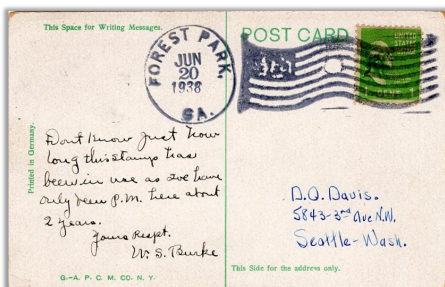 This Space for Writing Messages.
POST CARD
UNITED
STATES
FOREST PARK.
JUN
20
1938
GA.
Printed in Germany.
Dont know just how
long this stamp has
been in use as I've have
only been P.M. here about
2 years.
Yours Respt.
W. S. Burke
D.O. Davis.
5843-3rd Ave N.W.
Seattle-Wash.
G.-A. P. C. M. CO. N. Y.
This Side for the address only.